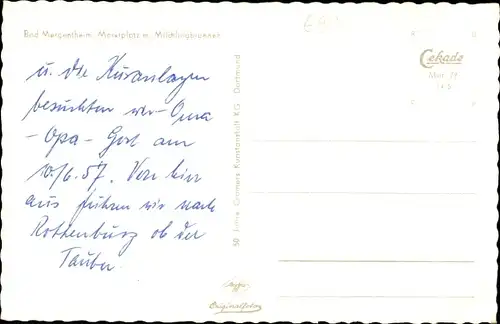 Bad Mergentheim. Marktplatz m. Milchlingbrunnen
Cekade
Mer 71
u. die Kuranlagen
besuchten wir Oma
- Opa - Gert am
10/6.57. Von hier
aus fuhren wir nach
Rothenburg ob der
Tauber.
50 Jahre Cramers Kunstanstalt KG. Dortmund
Originalfoto